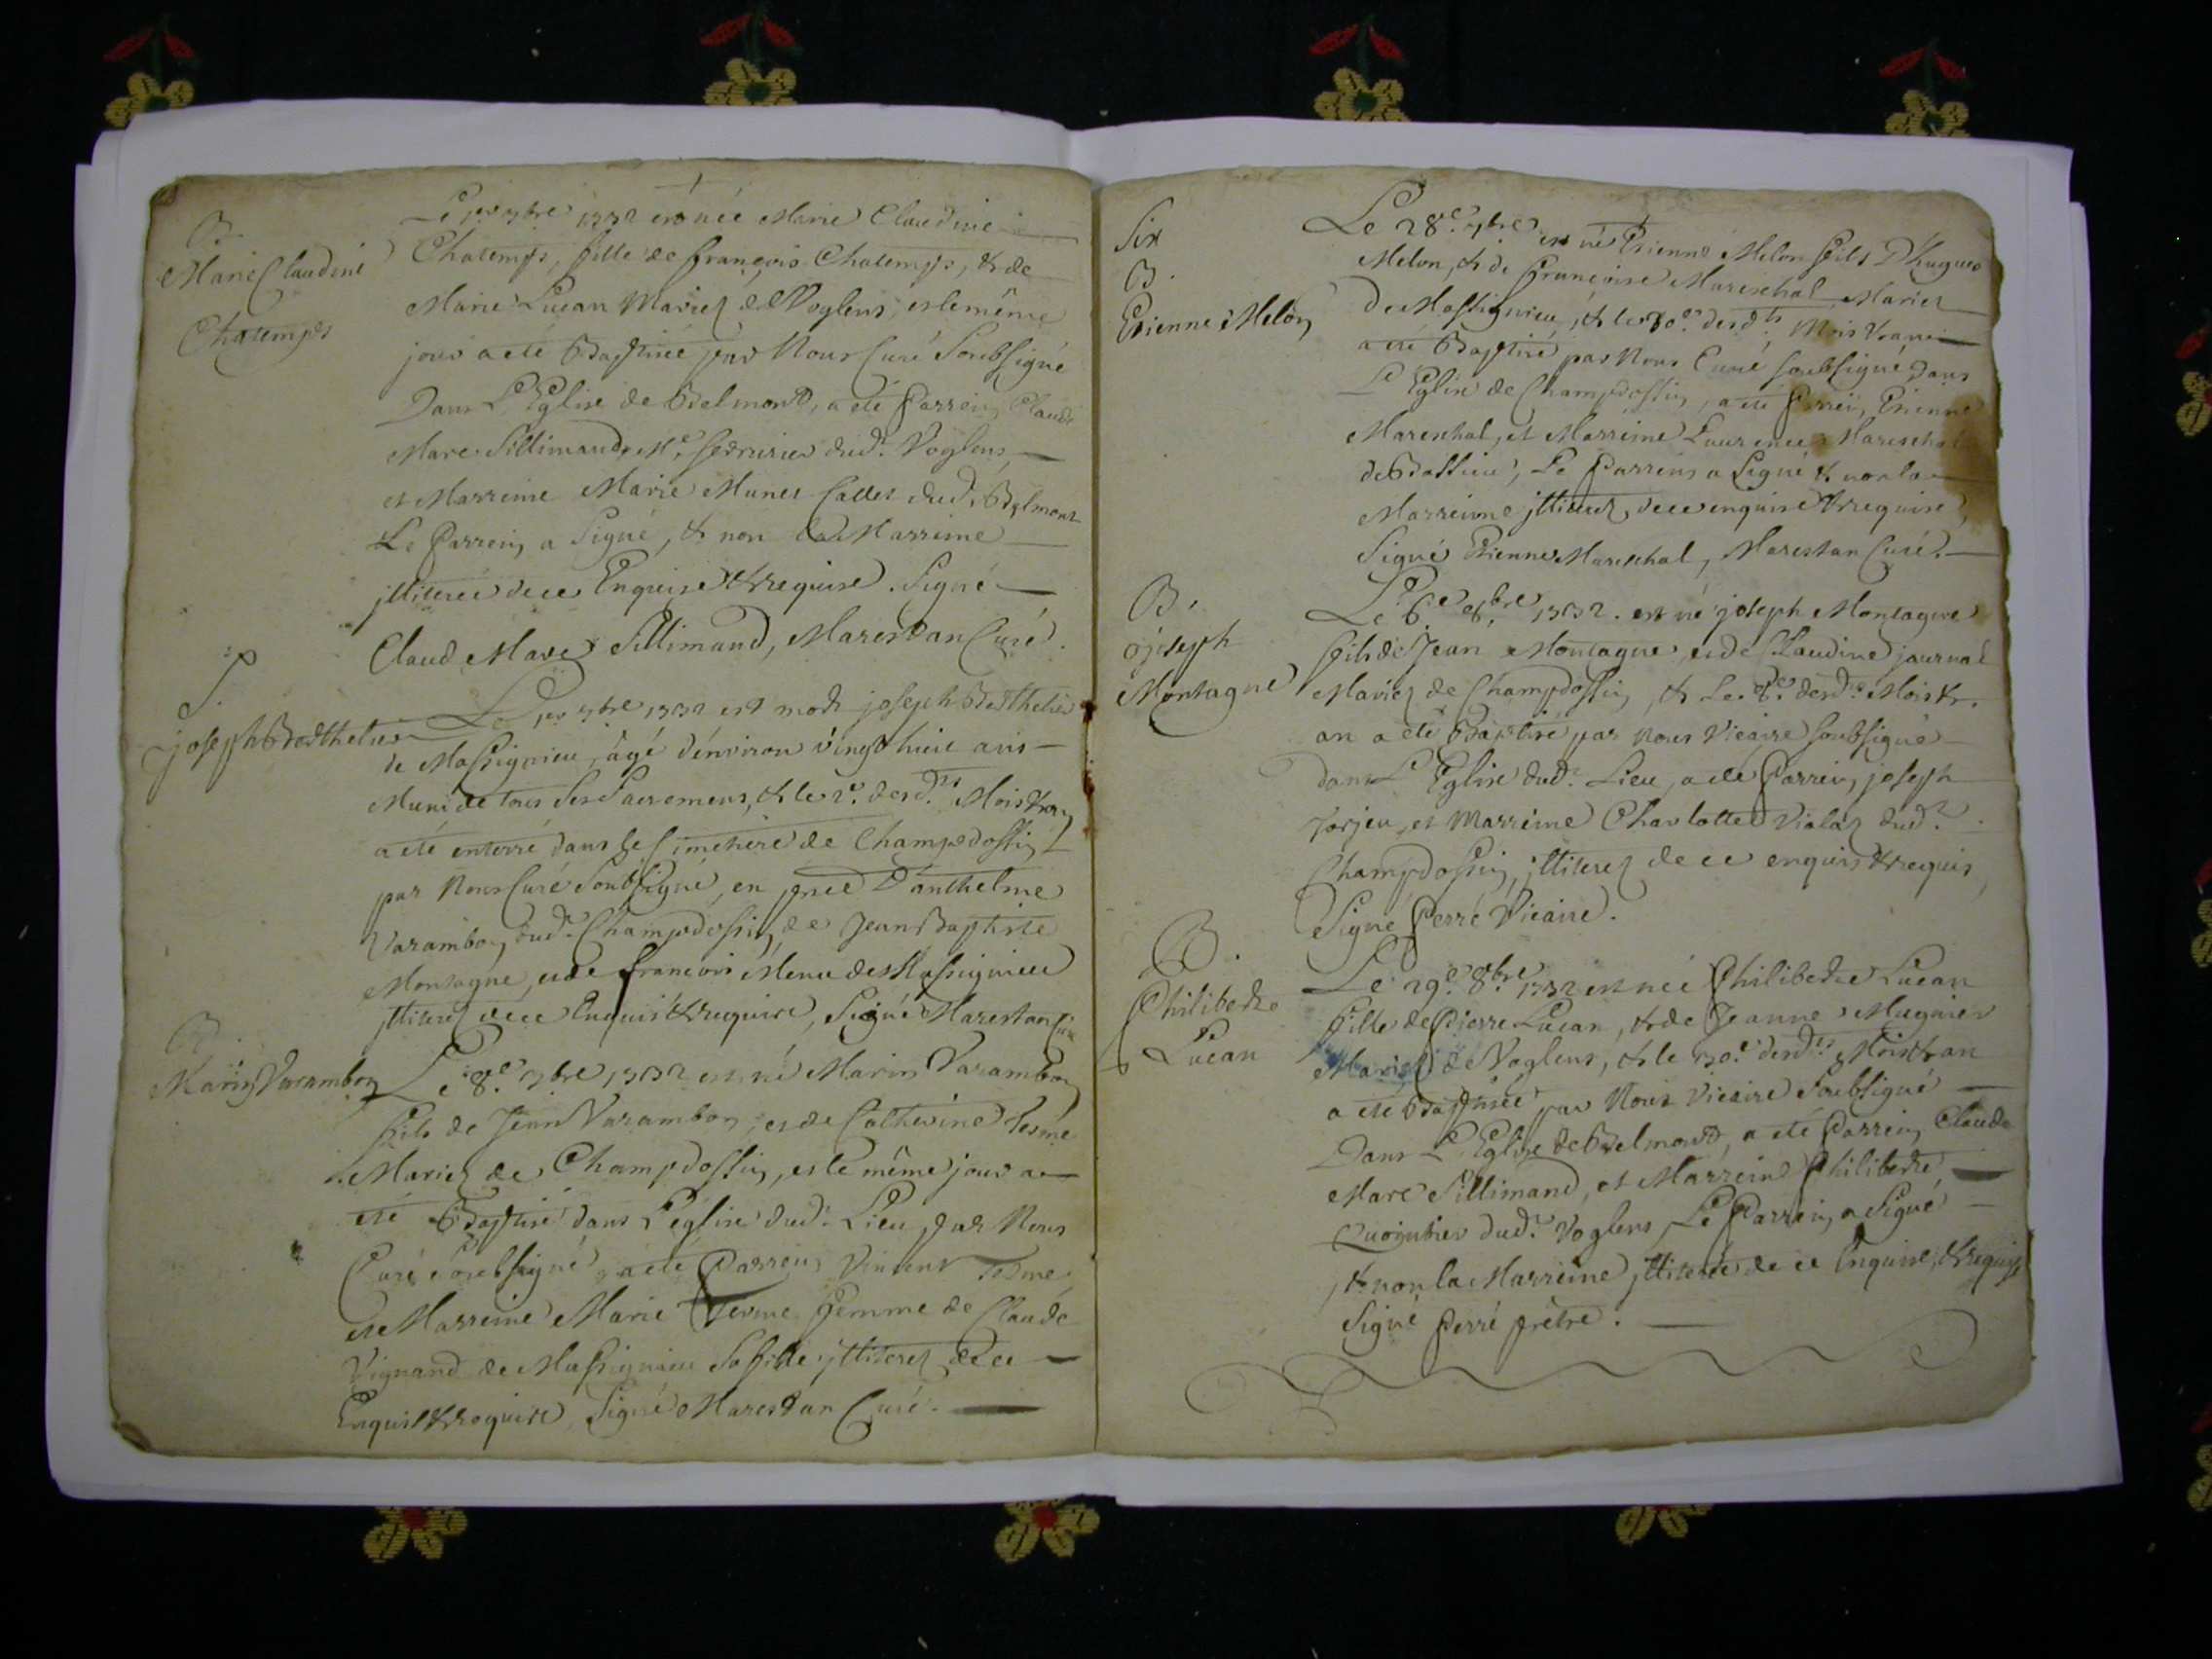 B.
Marie Claudine
Chatemps
Le 1er 7bre 1732 est née Marie Claudine
Chatemps, fille de françois Chatemps, & de
Marie Luçan Mariez de Voglens, et le même
jour a eté Baptisée par Nous Curé Soubsigné
Dans L'Eglise de Belmont, a été Parrein Claude
Marc Sillimand, Me. Serrurier dud. Voglens,
et Marreine Marie Munet Callet dud. Belmont
Le Parrein a Signé, & non la Marreine
jlliterée de ce Enquise & requise. Signé
Claud Marc Sillimand, Marestan Curé.
S.
joseph Berthelier
Le 1er 7bre 1732 est mort joseph Berthelier
de Massignieu, âgé d'environ vingt huit ans
Muni de tous ses Sacremens, & le 2e. desd.ts Mois & an
a eté enterré dans le Cimetiere de Champdossin
par Nous Curé Soubsigné, en pnce D'anthelme
Varambon dud. Champdossin, de Jean Baptiste
Montagne, et de françois Menu de Massignieu
jlliterez de ce Enquis & requis, Signé Marestan Curé
B.
Marin Varambon
Le 8e. 7bre 1732 est né Marin Varambon
fils de Jean Varambon, et de Catherine Terme
Mariez de Champdossin, et le même jour a
eté Baptisé dans L'eglise dud. Lieu par Nous
Curé Soubsigné, a eté Parrein Vincent Terme,
et Marreine Marie Terme femme de Claude
Vignand de Massignieu Sa fille jlliterez de ce
Enquis & requis, Signé Marestan Curé.
Six
B.
Etienne Melon
Le 28e. 7bre est né Etienne Melon fils D'hugues
Melon, & de Françoise Mareschal Mariez
de Massignieu, & le 30e. desd.ts Mois & an
a eté Baptisé par Nous Curé soubsigné dans
L'Eglise de Champdossin, a eté Parrein Etienne
Mareschal, et Marreine Laurence Mareschal
de Bassieu, Le Parrein a Signé & non la
Marreinne jlliterée, de ce enquise & requise,
Signé Etienne Mareschal, Marestan Curé.
B.
joseph
Montagne
Le 6e 8bre 1732. est né joseph Montagne
fils de Jean Montagne, et de Claudine journal
Mariez de Champdossin, & Le desd. Mois &
an a eté Baptisé par Nous Vicaire Soubsigné
dans L'Eglise dud. Lieu, a eté Parrein joseph
jorjeu, et Marreine Charlotte Violaz dud.
Champdossin, jlliterez de ce enquis & requis,
Signé Perré Vicaire.
B.
Philiberte
Luçan
Le 29e. 8bre. 1732 est née Philiberte Luçan
fille de Pierre Luçan, & de Jeanne Mugnier
Mariez de Voglens, & le 30e. desd.ts Mois & an
a eté Baptisée par Nous Vicaire Soubsigné
Dans L'Eglise de Belmont, a eté Parrein Claude
Marc Sillimand, et Marreine Philiberte
dud. Voglens, Le Parrein a Signé
& non la Marreine jlliterée de ce Enquise, & requise
Signé Perré prêtre.